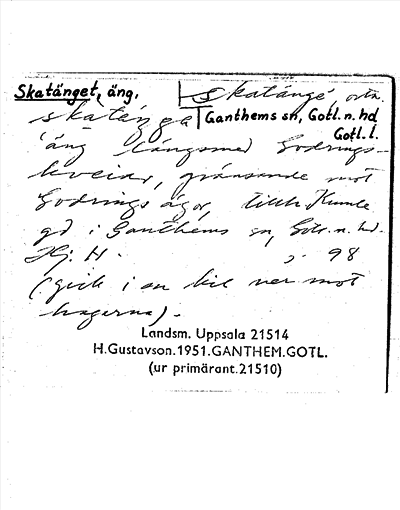 Skatänget, äng.
skatängė, ortn.
skatęŋga
Ganthems sn, Gotl. n. hd
Gotl. l.
äng längsmed Godrings-
kveiar, gränsande mot
Godrings ägor, tillh. Kumle
gd i Ganthems sn, Gotl. n. hd.
Hj. H. s. 98
(gick i en kil ner mot
hagarna).
Landsm. Uppsala 21514
H.Gustavson.1951.GANTHEM.GOTL.
(ur primärant.21510)